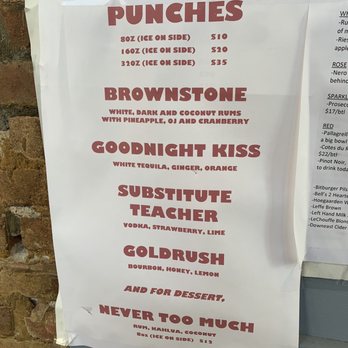 PUNCHES
8OZ (ICE ON SIDE) $10
16OZ (ICE ON SIDE) $20
32OZ (ICE ON SIDE) $35
BROWNSTONE
WHITE, DARK AND COCONUT RUMS
WITH PINEAPPLE, OJ AND CRANBERRY
GOODNIGHT KISS
WHITE TEQUILA, GINGER, ORANGE
SUBSTITUTE
TEACHER
VODKA, STRAWBERRY, LIME
GOLDRUSH
BOURBON, HONEY, LEMON
AND FOR DESSERT,
NEVER TOO MUCH
RUM, KAHLUA, COCONUT
8oz (ICE ON SIDE) $15
of m
apple
ROSE
- Nero
behin
SPARKL
- Prosecc
$17/btl
RED
- Pallagrell
a big bowl
- Cotes du
$22/btl
- Pinot Noir,
to drink toda
- Bitburger Pils
- Bell's 2 Hearts
- Hoegaarden W
- Leffe Brown
- Left Hand Milk
- LeChouffe Blond
- Downeast Cider